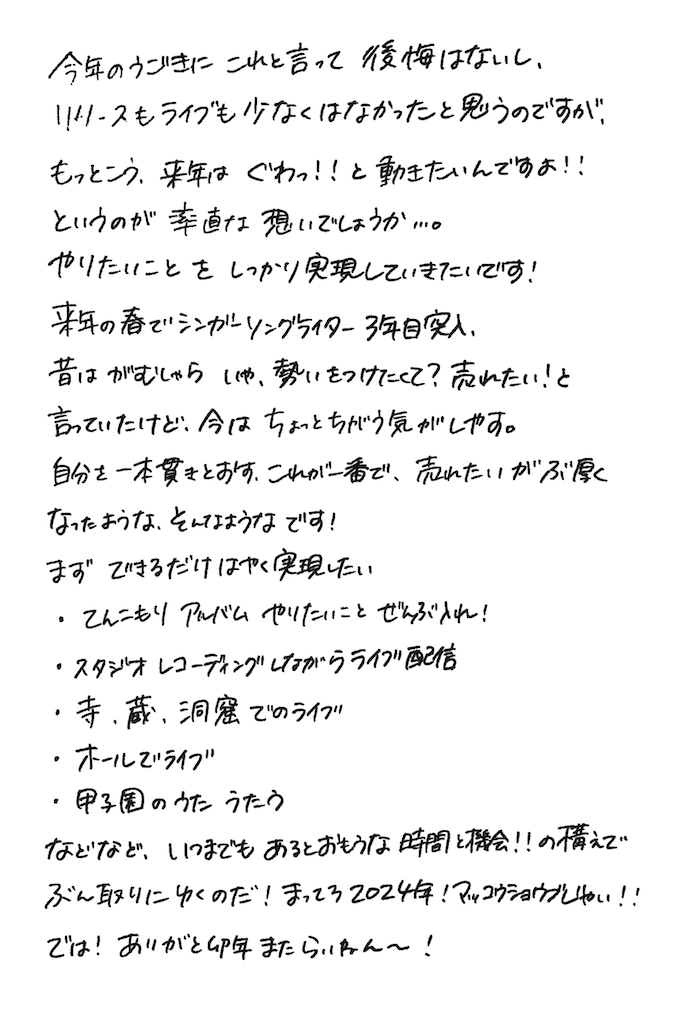 今年のうごきに これと言って 後悔はないし、
リリースもライブも少なくはなかったと思うのですが、
もっとこう、来年は ぐわっ!!と動きたいんですよ!!
というのが 率直な 想いでしょうか…。
やりたいことを しっかり実現していきたいです!
来年の春でシンガーソングライター3年目突入、
昔は がむしゃら いや、勢いをつけたくて?売れたい!と
言っていたけど、今は ちょっとちがう気がしやす。
自分を一本貫きとおす、これが一番で、売れたいがぶ厚く
なったような、そんなような です!
まず できるだけはやく実現したい
・てんこもり アルバム やりたいこと ぜんぶ入れ!
・スタジオ レコーディングしながらライブ配信
・寺、蔵、洞窟でのライブ
・ホールでライブ
・甲子園のうた うたう
などなど、いつまでも あるとおもうな 時間と機会!!の構えで
ぶん取りに ゆくのだ!まってろ2024年!マッコウショウブじゃい!!
では!ありがと卯年 また らいねん〜!